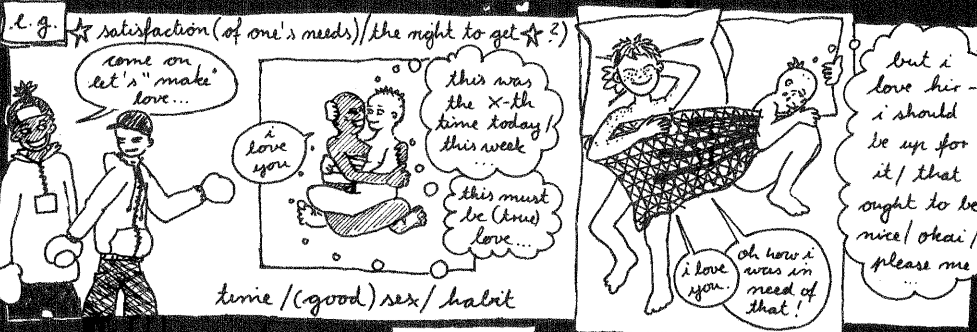 e.g.
☆ satisfaction (of one's needs)/the right to get ☆?)
come on
let's "make"
love...
i
love
you
this was
the x-th
time today/
this week
...
this must
be (true)
love...
time /(good) sex/ habit
i love
you.
oh how i
was in
need of
that!
but i
love hir -
i should
be up for
it/ that
ought to be
nice/ okai/
please me
...